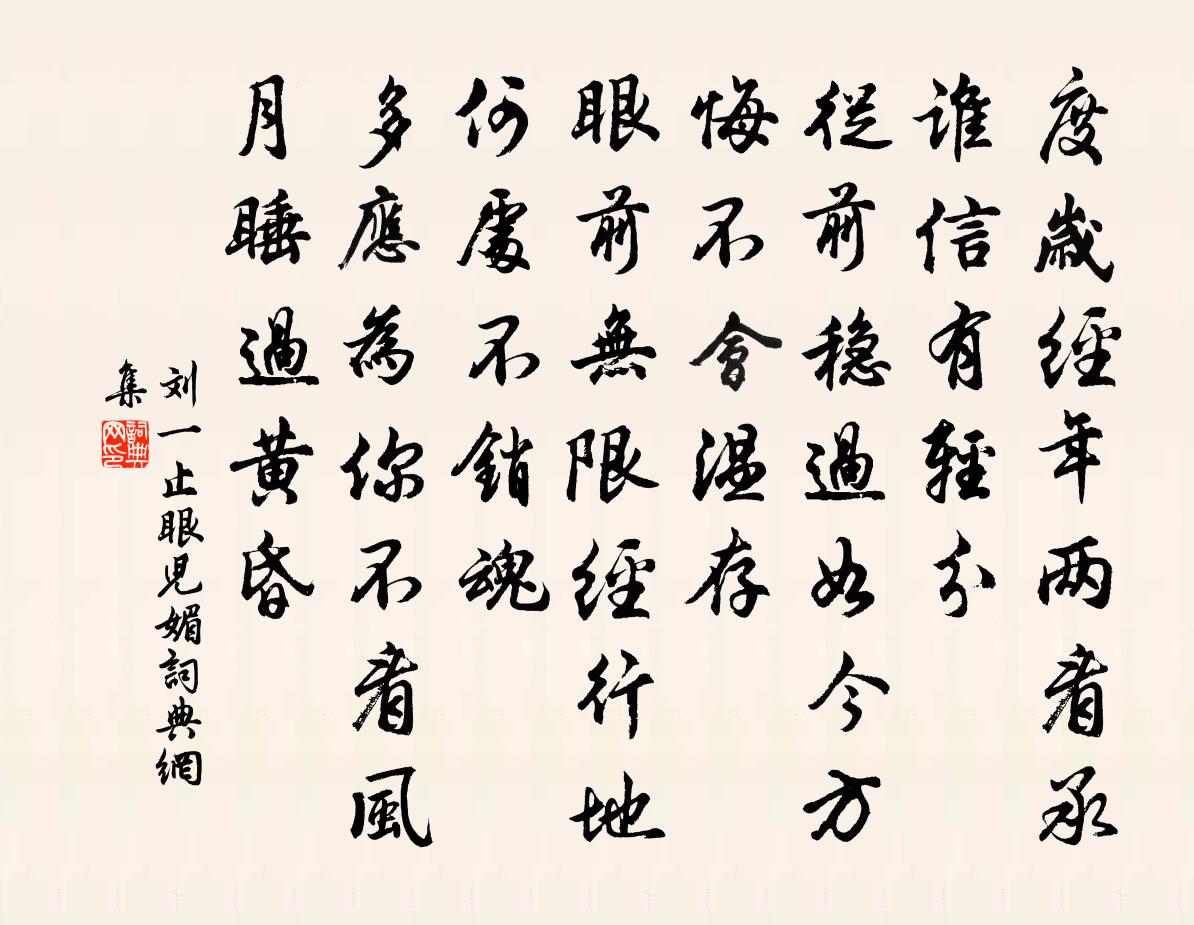 度歲經年兩看承
誰信有輕分
從前穩過如今方
悔不會溫存
眼前無限經行地
何處不銷魂
多應為你不看風
月睡過黃昏
刘一止眼兒媚詞典網
集
詞典
网印